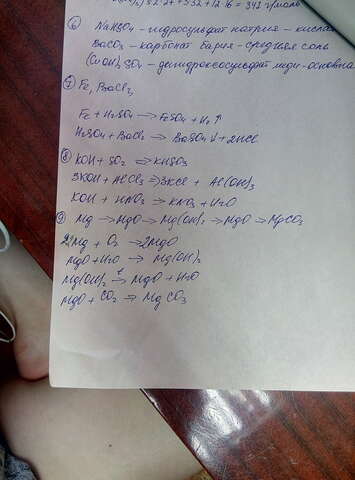 = 342 г/моль
⑥ NaHSO4 - гидросульфат натрия - кислая
BaCO3 - карбонат бария - средняя соль
(CuOH)2SO4 - - основная
⑦ Fe, BaCl2,
Fe + H2SO4 → FeSO4 + H2↑
H2SO4 + BaCl2 → BaSO4↓ + 2HCl
⑧ KOH + SO2 ⇒ KHSO3
3KOH + AlCl3 ⇒ 3KCl + Al(OH)3
KOH + HNO3 ⇒ KNO3 + H2O
⑨ Mg → MgO → Mg(OH)2 → MgO → MgCO3
2Mg + O2 → 2MgO
MgO + H2O → Mg(OH)2
Mg(OH)2 t→ MgO + H2O
MgO + CO2 ⇒ MgCO3